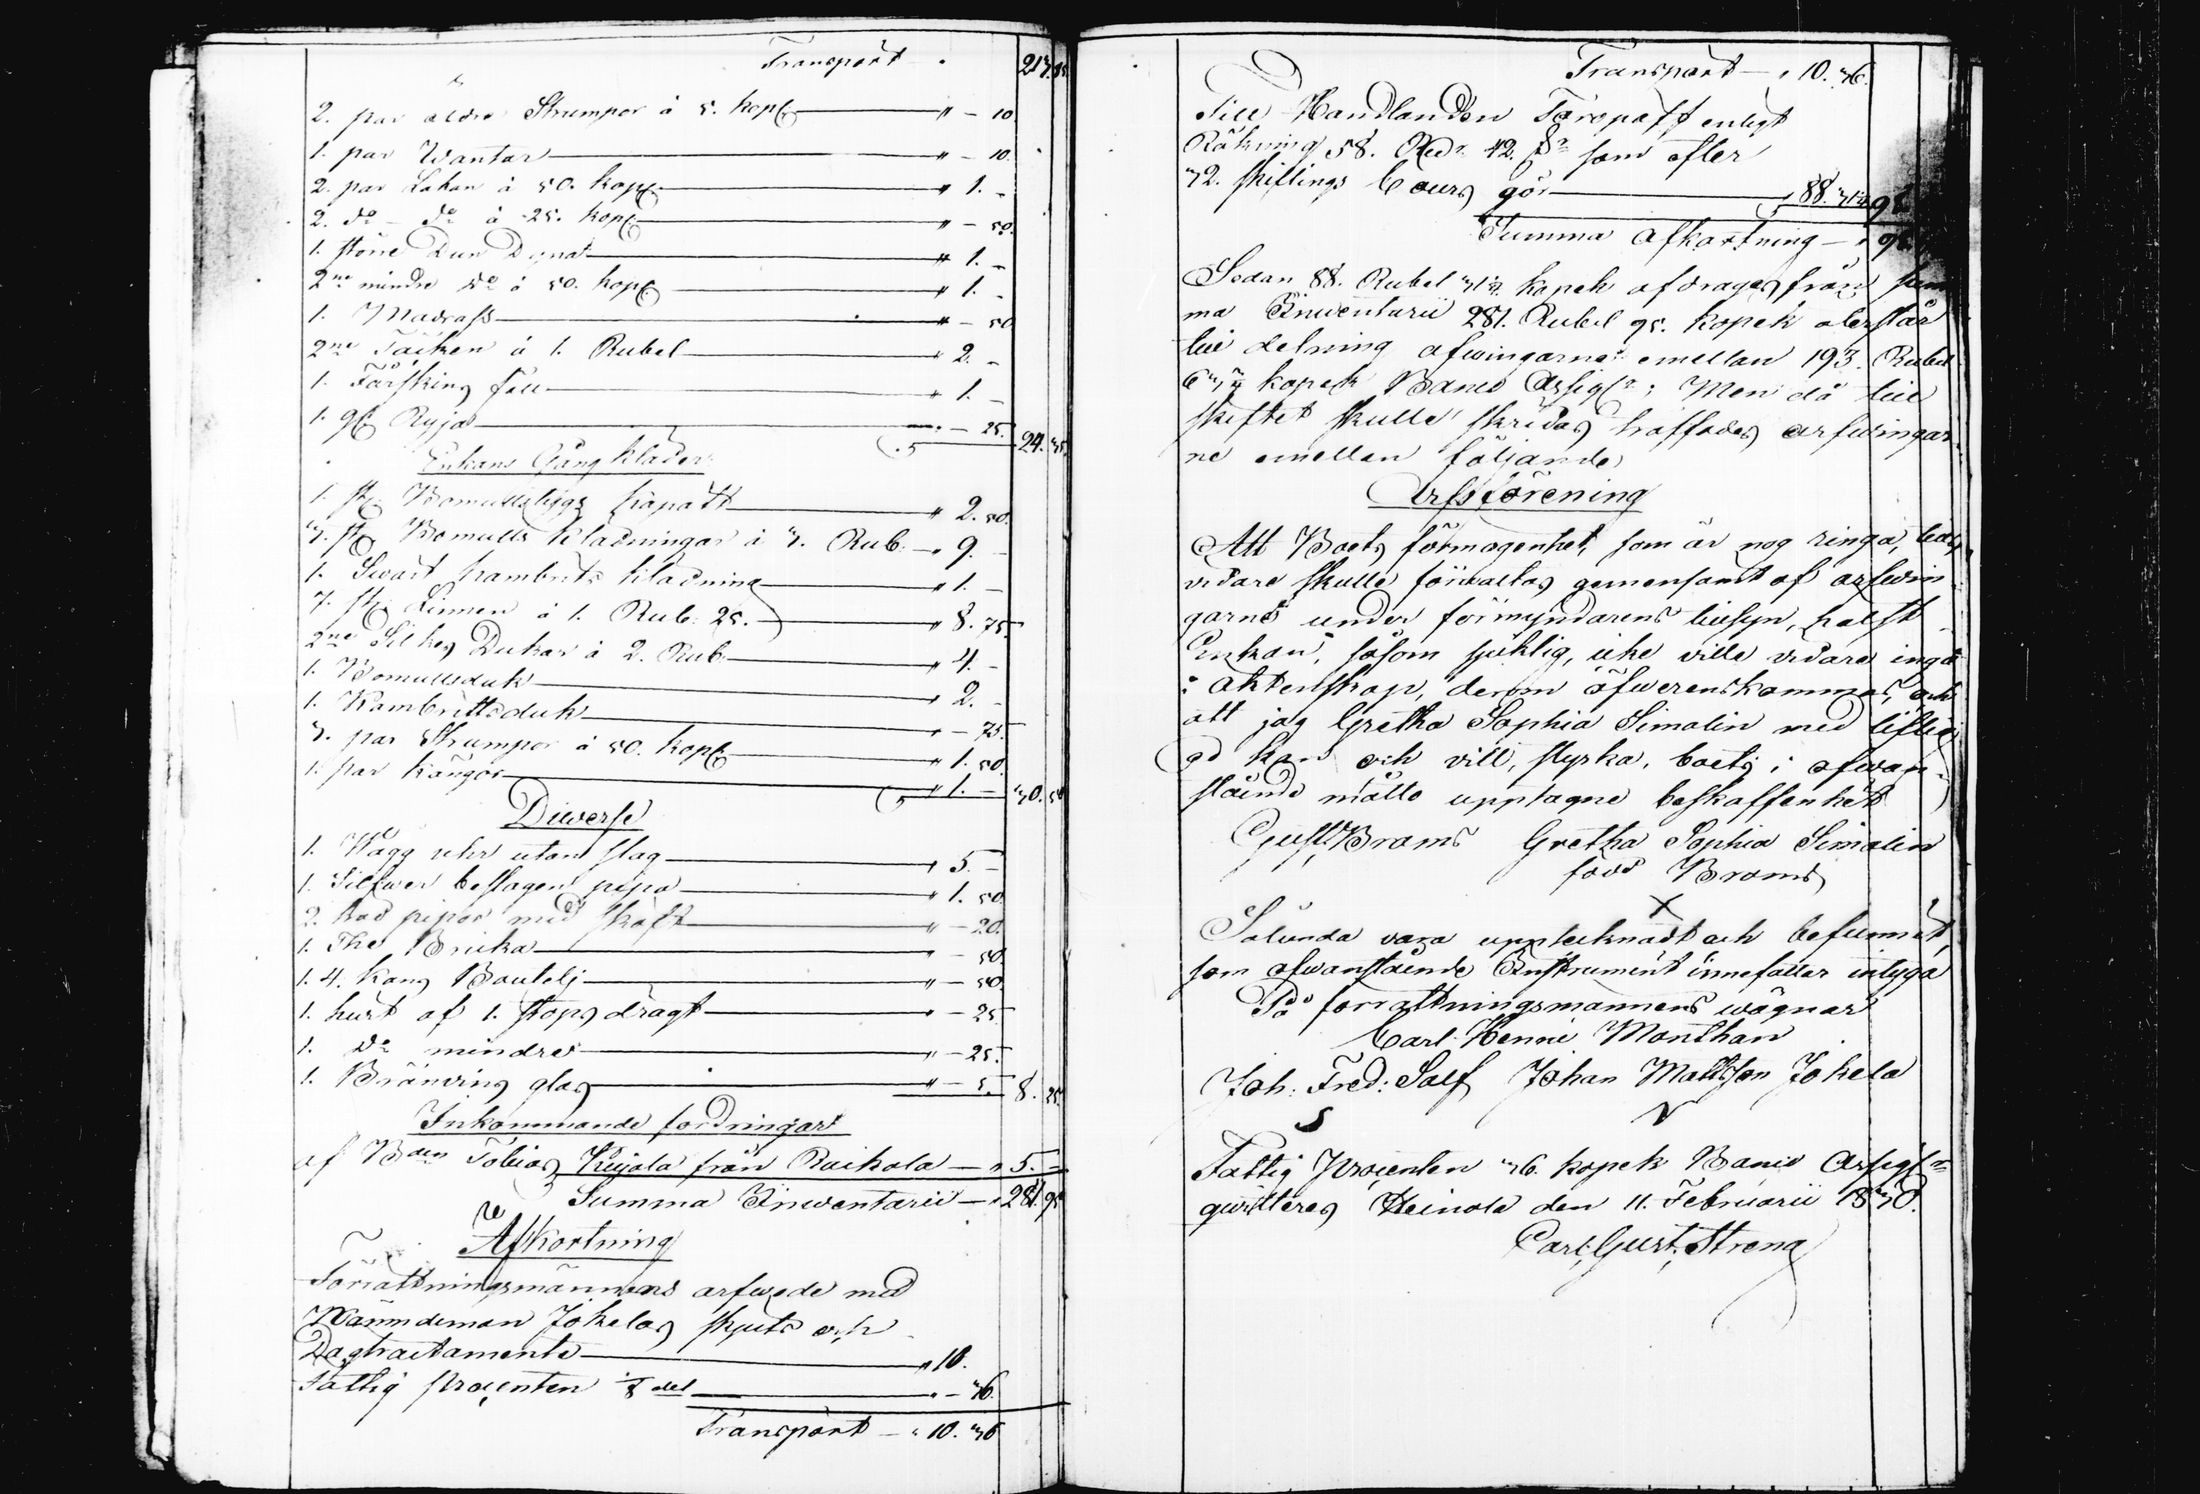 Transport — " 217. 85.
2. par äldre Strumpor á 5. kop. — " — 10
1. par Wantar — " — 10.
2. par Lakan á 50. kop. — " 1. —
2. do — do á 25. kop. — " — 50.
1. större Dun Dyna — " 1. —
2ne mindre do á 50. kop. — " 1. —
1. Madrass — " — 50
2ne Täcken á 1. Rubel — " 2. —
1. Fårskins fäll — " 1. —
1. gl. Ryja — " — 25. 24. 35.
Enkans Gång kläder
1. st. Bomullstygs kapott — " 2. 50.
3. st. Bomulls klädningar á 3. Rub. — " 9. —
1. Swart kambrits kladning — " 1. —
7. st. Linnen á 1. Rub: 25. — " 8. 75.
2ne Silkes Dukar á 2. Rub — " 4. —
1. Bomullsduk — " 2. —
1. Kambrittsduk — " — 75.
3. par Strumpor á 50. kop. — " 1. 50.
1. par kängor — " 1. — 30. 50
Diverse
1. Wägg uhr utan slag — " 5. —
1. Silfwer beslagen pipa — " 1. 50.
2. pipor med skaft — " — 20.
1. The Bricka — " — 50.
1. 4. kans Boutelj — " — 50.
1. af 1. stops drägt — " — 25
1. do mindre — " — 25.
1. Bränvins glas — " — 5. 8. 25.
Inkommande fordringar
af Bden Tobias Kujala från Raikola — " 5. —
Summa Inventarii — " 281. 95
Afkortning
Förrättningsmannens arfwode med
Nämndeman Jokelas skjuts och
Dagtraktamente — " 10.
Fattig procenten 1/8 del — " — 36.
Transport — " 10. 36
Transport — " 10. 36.
Till Handlanden Taropaff enligt
Räkning 58. Rdr 42. s. som efter
32. skillings Cours gör — " 88. 98
Summa afkortning — " 98
Sedan 88. Rubel kopek afdrages från Sum
ma Inventarii 281. Rubel 95. kopek återstår
till delning arfwingarne emellan 193. Rubel
kopek Banco Assigr; Men då till
skiftet skulle skridas träffades arfwingar
ne emellan följande
Arfsförening
Att Boets förmögenhet, som är nog ringa,
vidare skulle förwaltas gemensamt af arfwin
garne under förmyndarens tillsyn, hälst
Enkan, såsom sjuklig, icke ville vidare ingå
i äktenskap, derom öfwerenskommes, och
att jag Gretha Sophia Simolin med liflig
ed kan och vill, styrka, boets i ofwan
stående måtto upptagne beskaffenhet
Gust. Broms Gretha Sophia Simolin
född Broms
X
Sålunda vara upptecknadt och befunnit,
som ofwanstående Instrument innefattar intyga
På förrättningsmannens wägnar
Carl Henric Monthan
Joh: Fred: Salf Johan Mattsson Jokela
Fattig Procenten 36. kopek Banco Assigr
quitteras Heinola den 11. Februarii 1830.
Carl Gust. Streng